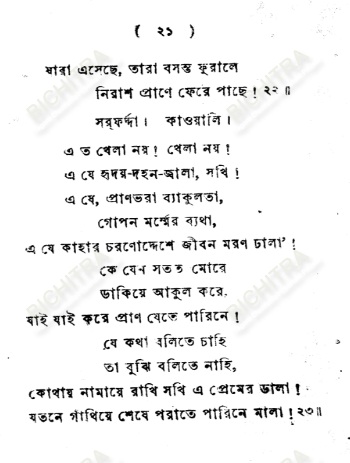 ( ২১ )
যারা এসেছে, তারা বসন্ত ফুরালে
নিরাশ প্রাণে ফেরে পাছে ! ২২ ॥
সর্‌ফর্দ্দা । কাওয়ালি ।
এ ত খেলা নয় ! খেলা নয় !
এ যে হৃদয়-দহন-জ্বালা, সখি !
এ যে, প্রাণভরা ব্যাকুলতা,
গোপন মর্ম্মের ব্যথা,
এ যে কাহার চরণোদ্দেশে জীবন মরণ ঢালা' !
কে যেন সতত মোরে
ডাকিয়ে আকুল করে,
যাই যাই করে প্রাণ যেতে পারিনে !
যে কথা বলিতে চাহি
তা বুঝি বলিতে নাহি,
কোথায় নামায়ে রাখি সখি এ প্রেমের ডালা !
যতনে গাঁথিয়ে শেষে পরাতে পারিনে মালা ! ২৩॥
BICHITRA